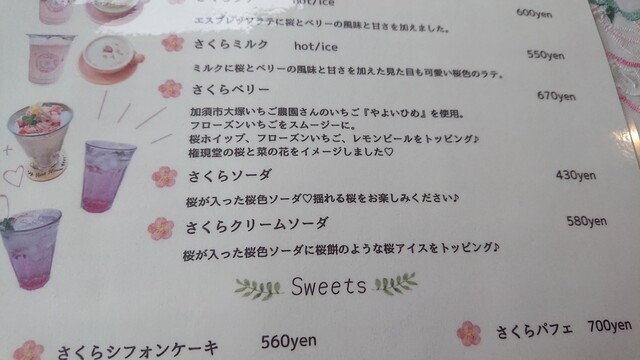 hot/ice 600yen
エスプレッソラテに桜とベリーの風味と甘さを加えました。
さくらミルク hot/ice 550yen
ミルクに桜とベリーの風味と甘さを加えた見た目も可愛い桜色のラテ。
さくらベリー 670yen
加須市大塚いちご農園さんのいちご『やよいひめ』を使用。
フローズンいちごをスムージーに。
桜ホイップ、フローズンいちご、レモンピールをトッピング♪
権現堂の桜と菜の花をイメージしました♡
さくらソーダ 430yen
桜が入った桜色ソーダ♡揺れる桜をお楽しみください♪
さくらクリームソーダ 580yen
桜が入った桜色ソーダに桜餅のような桜アイスをトッピング♪
Sweets
さくらシフォンケーキ 560yen さくらパフェ 700yen